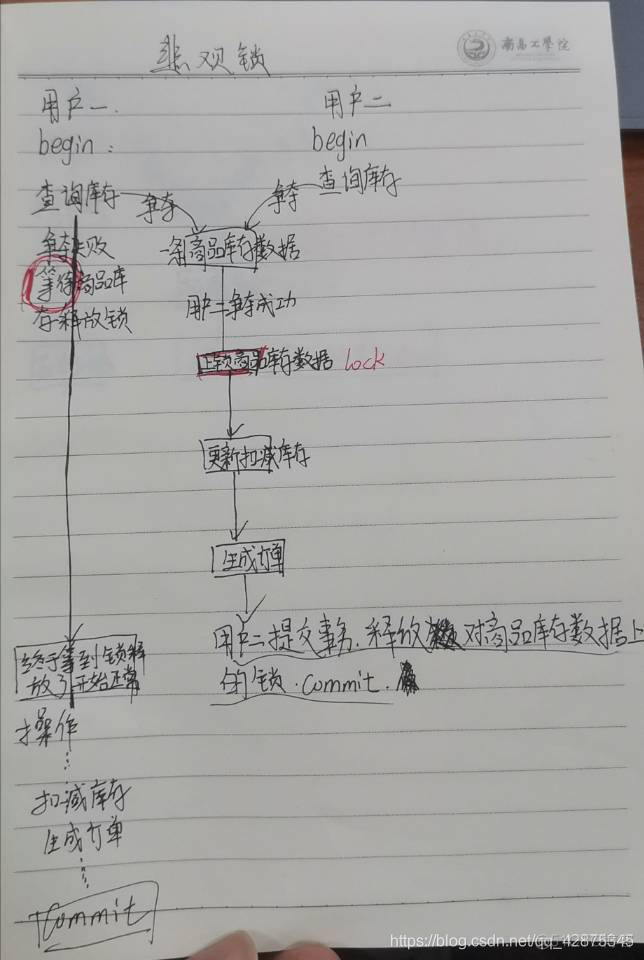 悲观锁
南昌工學院
用户一.
用户二
begin:
begin
查询库存
争夺
争夺
查询库存
争夺失败
一条商品库存数据
等待商品库
存释放锁
用户二争夺成功
上锁商品库存数据 lock
更新扣减库存
生成订单
用户二提交事务.释放对商品库存数据上
的锁.commit.
终于等到锁释
放了开始正常
操作
扣减库存
生成订单
Commit
https://blog.csdn.net/qq_42875345